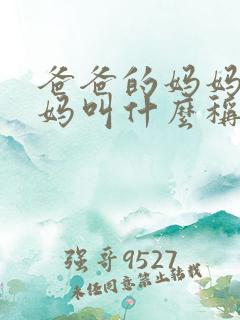 爸爸的妈妈
妈叫什麼称
强哥9527
未经同意禁止转载